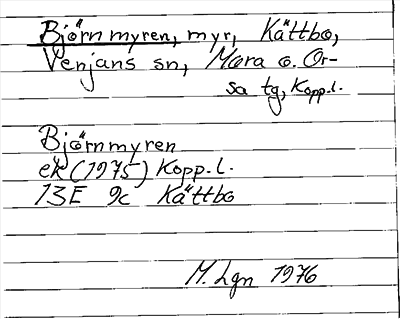 Björnmyren, myr, Kättbo,
Venjans sn, Mora o. Or-
sa tg, Kopp.l.
Björnmyren
ek (1975) Kopp.l.
13E 9c Kättbo
M. Lgn 1976